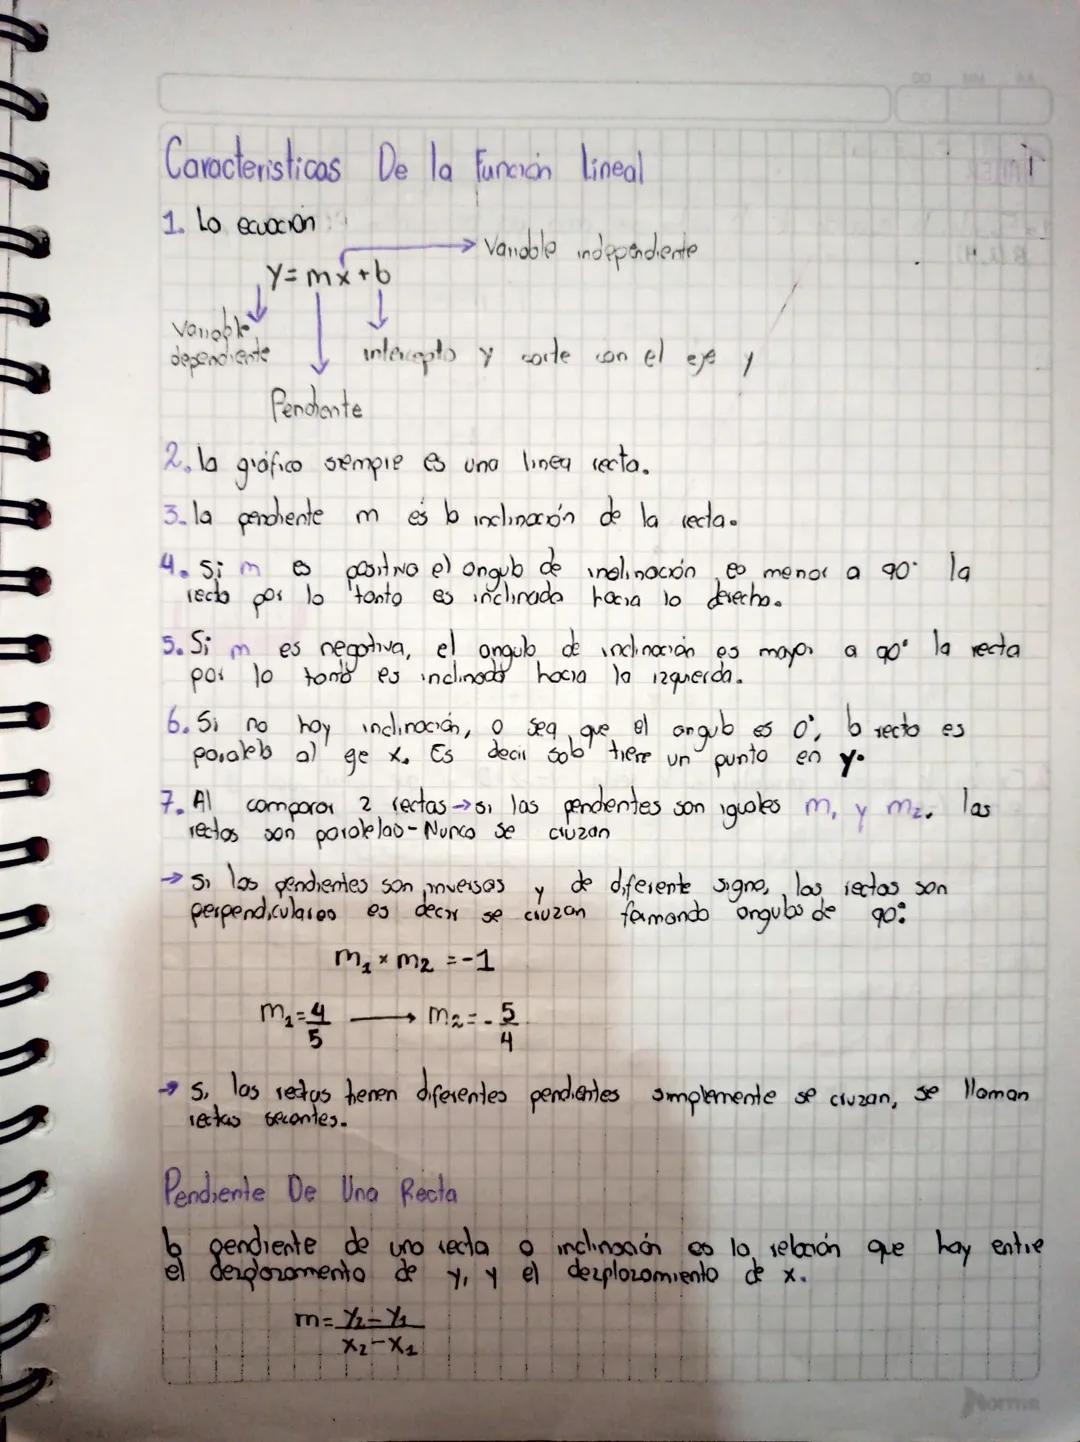 Caracteristicas De la Función Lineal
1. La ecuación
Variable independiente
y = mx + b
Variable dependiente
intercepto y corte con el eje y
Pendiente
2. la gráfica siempre es una linea recta.
3. la pendiente m es la inclinación de la recta.
4. Si m es positivo el angulo de inclinación es menor a 90° la
recta por lo tanto es inclinada hacia la derecha.
5. Si m es negativa, el angulo de inclinación es mayor a 90° la recta
por lo tanto es inclinada hacia la izquierda.
6. Si no hay inclinación, o sea que el angulo es 0°, la recta es
paralela al eje x. Es decir solo tiene un punto en y.
7. Al comparar 2 rectas → si las pendientes son iguales m₁ y m₂. las
rectas son paralelas - Nunca se cruzan
→ Si las pendientes son inversas y de diferente signo, las rectas son
perpendiculares es decir se cruzan formando angulos de 90°
m₁ × m₂ = -1
m₁ = 4/5 → m₂ = - 5/4
→ Si las rectas tienen diferentes pendientes simplemente se cruzan, se llaman
rectas secantes.
Pendiente De Una Recta
la pendiente de una recta o inclinación es la relación que hay entre
el desplazamento de y, y el dezplozomiento de x.
m = y₂ - y₁ / x₂ - x₁
Norma